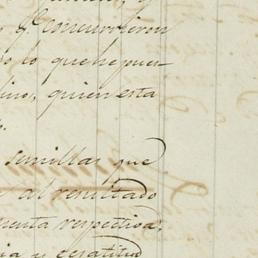 y concurrieron
lo que he pue
quien esta
semillas que
al resultado
cuenta respectiva.
y exactitud